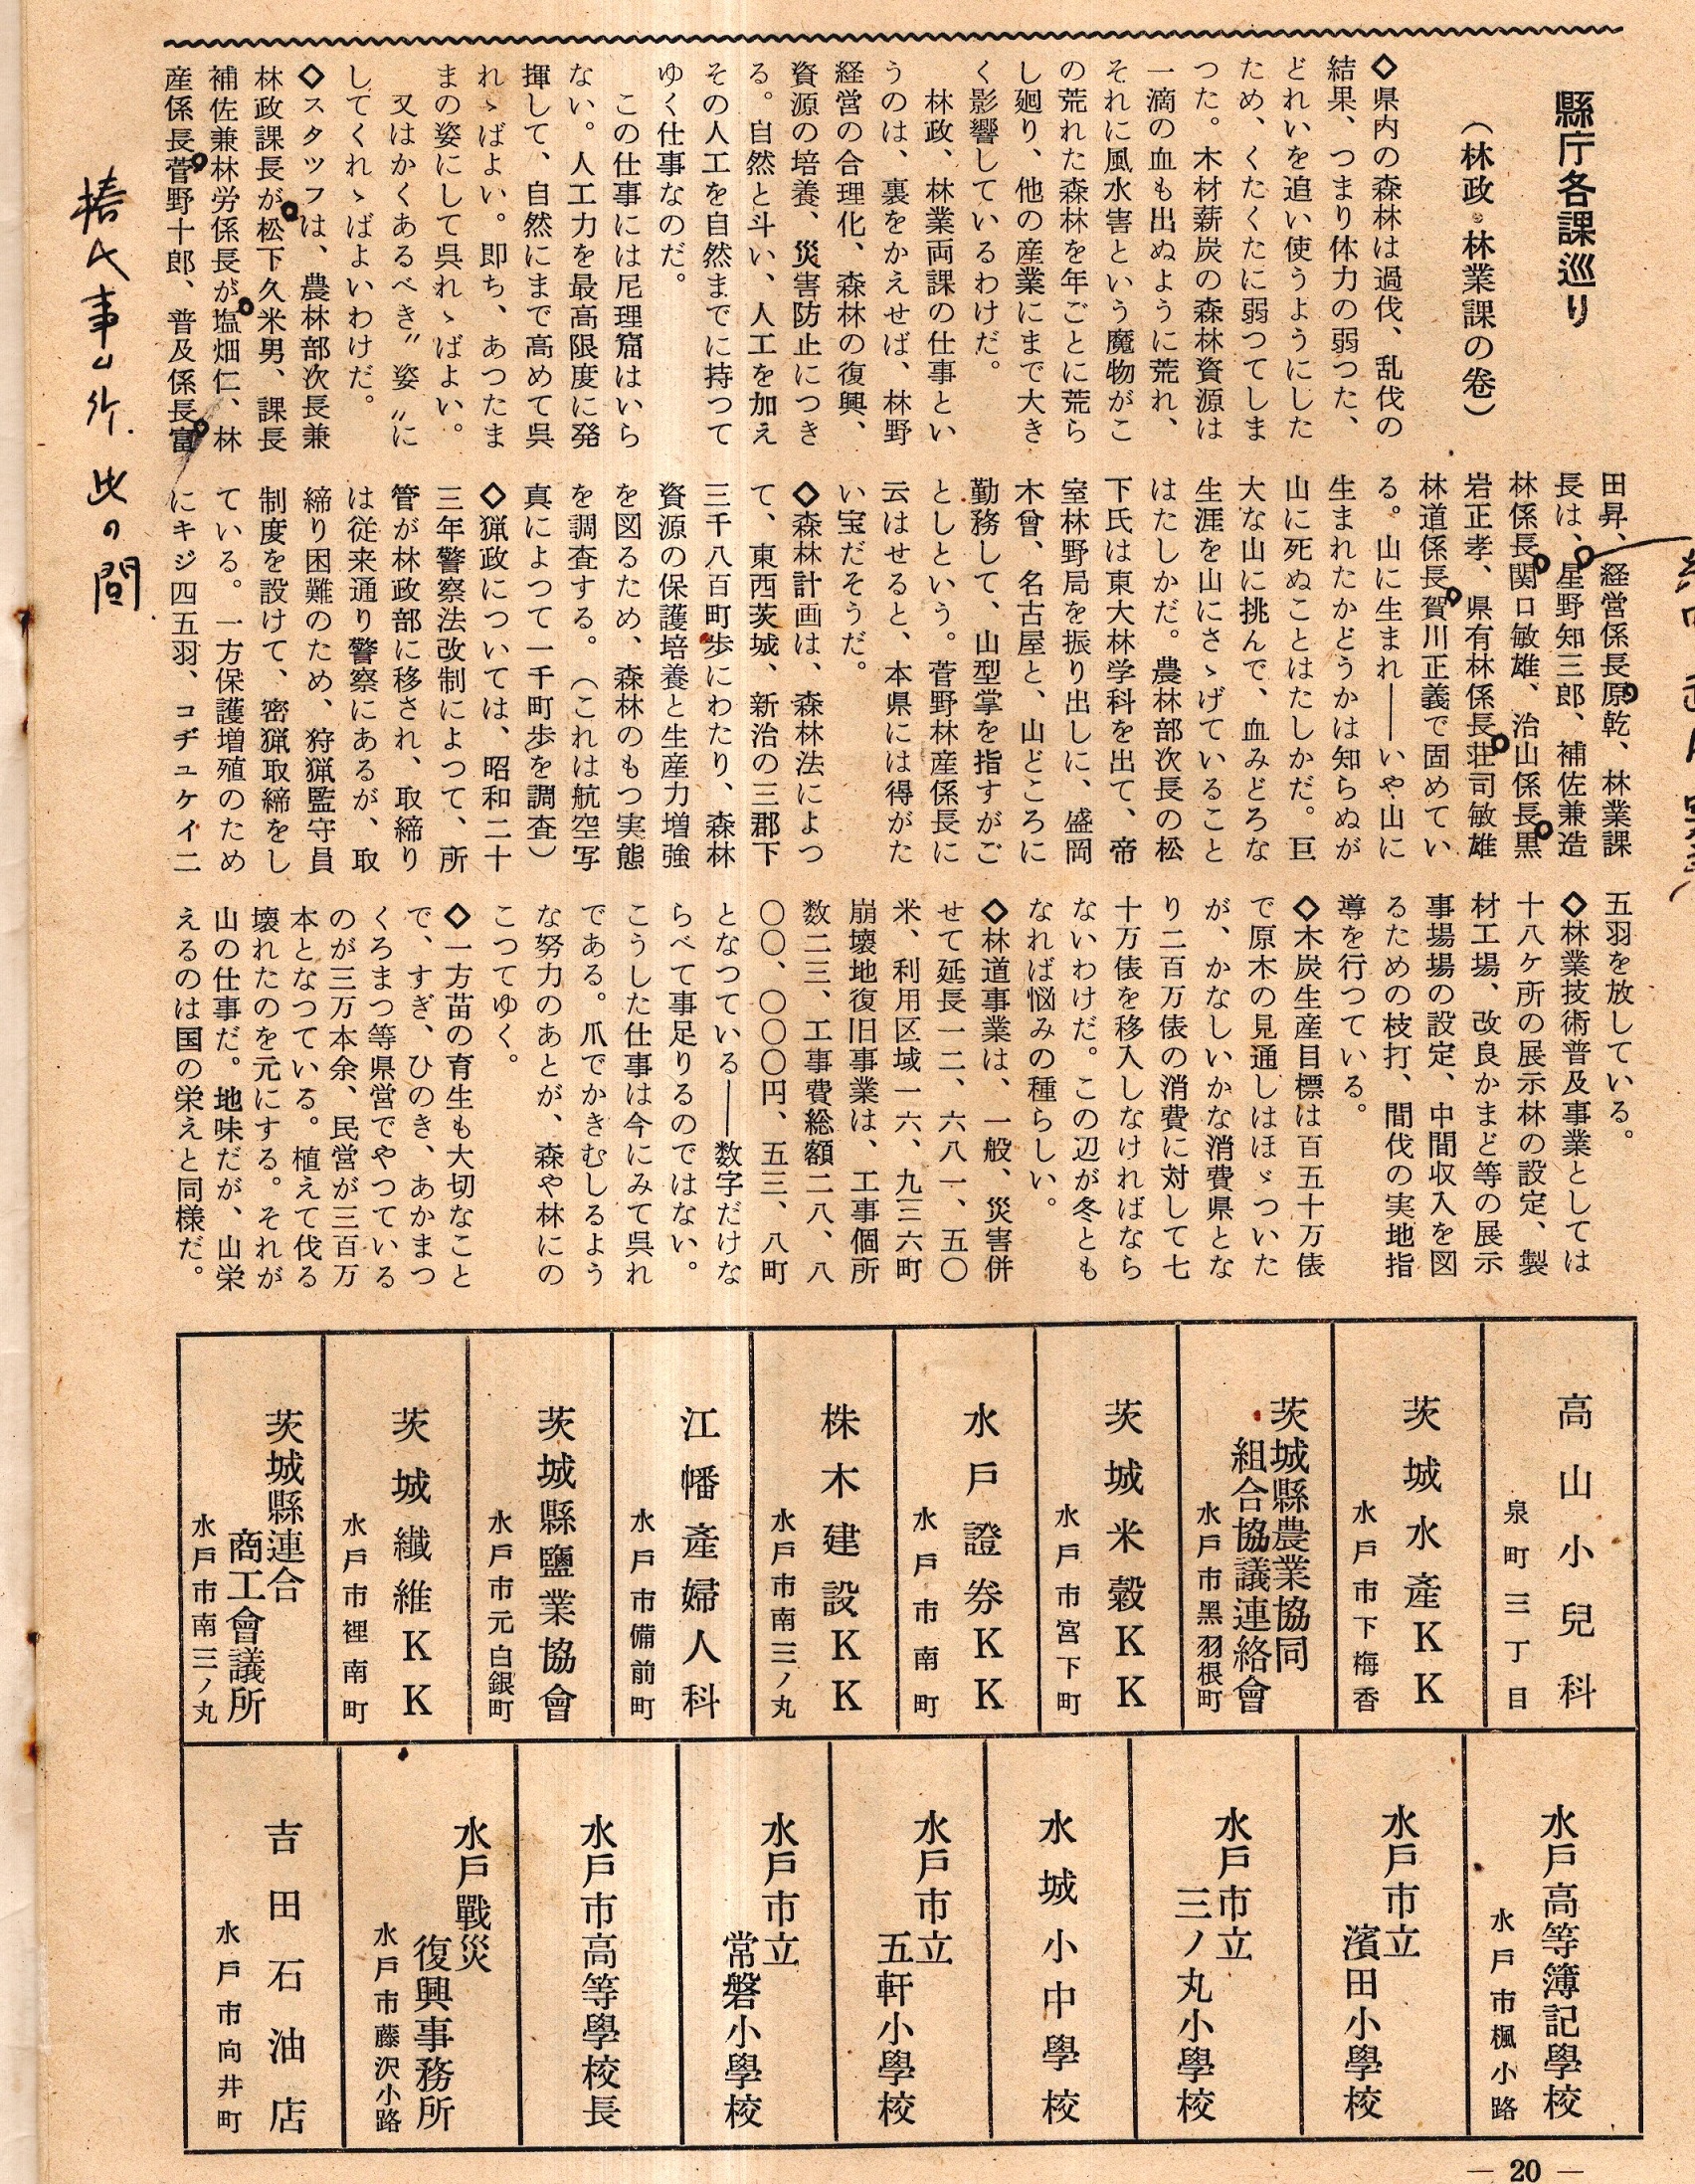 縣庁各課巡り
（林政・林業課の巻）
◇県内の森林は過伐、乱伐の
結果、つまり体力の弱つた、
どれいを追い使うようにした
ため、くたくたに弱つてしま
つた。木材薪炭の森林資源は
一滴の血も出ぬように荒れ、
それに風水害という魔物がこ
の荒れた森林を年ごとに荒ら
し廻り、他の産業にまで大き
く影響しているわけだ。
林政、林業両課の仕事とい
うのは、裏をかえせば、林野
経営の合理化、森林の復興、
資源の培養、災害防止につき
る。自然と斗い、人工を加え
その人工を自然までに持つて
ゆく仕事なのだ。
この仕事には尼理窟はいら
ない。人工力を最高限度に発
揮して、自然にまで高めて呉
れゝばよい。即ち、あつたま
まの姿にして呉れゝばよい。
又はかくあるべき〝姿〟に
してくれゝばよいわけだ。
◇スタツフは、農林部次長兼
林政課長が松下久米男、課長
補佐兼林労係長が塩畑仁、林
産係長菅野十郎、普及係長富
田昇、経営係長原乾、林業課
長は、星野知三郎、補佐兼造
林係長関口敏雄、治山係長黒
岩正孝、県有林係長荘司敏雄
林道係長賀川正義で固めてい
る。山に生まれ――いや山に
生まれたかどうかは知らぬが
山に死ぬことはたしかだ。巨
大な山に挑んで、血みどろな
生涯を山にさゝげていること
はたしかだ。農林部次長の松
下氏は東大林学科を出て、帝
室林野局を振り出しに、盛岡
木曾、名古屋と、山どころに
勤務して、山型掌を指すがご
としという。菅野林産係長に
云はせると、本県には得がた
い宝だそうだ。
◇森林計画は、森林法によつ
て、東西茨城、新治の三郡下
三千八百町歩にわたり、森林
資源の保護培養と生産力増強
を図るため、森林のもつ実態
を調査する。（これは航空写
真によつて一千町歩を調査）
◇猟政については、昭和二十
三年警察法改制によつて、所
管が林政部に移され、取締り
は従来通り警察にあるが、取
締り困難のため、狩猟監守員
制度を設けて、密猟取締をし
ている。一方保護増殖のため
にキジ四五羽、コヂュケイ二
五羽を放している。
◇林業技術普及事業としては
十八ケ所の展示林の設定、製
材工場、改良かまど等の展示
事場場の設定、中間収入を図
るための枝打、間伐の実地指
導を行つている。
◇木炭生産目標は百五十万俵
で原木の見通しはほゞついた
が、かなしいかな消費県とな
り二百万俵の消費に対して七
十万俵を移入しなければなら
ないわけだ。この辺が冬とも
なれば悩みの種らしい。
◇林道事業は、一般、災害併
せて延長一二、六八一、五〇
米、利用区域一六、九三六町
崩壊地復旧事業は、工事個所
数二三、工事費総額二八、八
〇〇、〇〇〇円、五三、八町
となつている――数字だけな
らべて事足りるのではない。
こうした仕事は今にみて呉れ
である。爪でかきむしるよう
な努力のあとが、森や林にの
こつてゆく。
◇一方苗の育生も大切なこと
で、すぎ、ひのき、あかまつ
くろまつ等県営でやつている
のが三万本余、民営が三百万
本となつている。植えて伐る
壊れたのを元にする。それが
山の仕事だ。地味だが、山栄
えるのは国の栄えと同様だ。
此の間
高山小兒科
泉町三丁目
茨城水産KK
水戸市下梅香
茨城縣農業協同
組合協議連絡會
水戸市黑羽根町
茨城米穀KK
水戸市宮下町
水戸證券KK
水戸市南町
株木建設KK
水戸市南三ノ丸
江幡產婦人科
水戸市備前町
茨城縣鹽業協會
水戸市元白銀町
茨城纖維KK
水戸市裡南町
茨城縣連合
商工會議所
水戸市南三ノ丸
水戸高等簿記學校
水戸市楓小路
水戸市立
濱田小學校
水戸市立
三ノ丸小學校
水城小中學校
水戸市立
五軒小學校
水戸市立
常磐小學校
水戸市高等學校長
水戸戰災
復興事務所
水戸市藤沢小路
吉田石油店
水戸市向井町
— 20 —